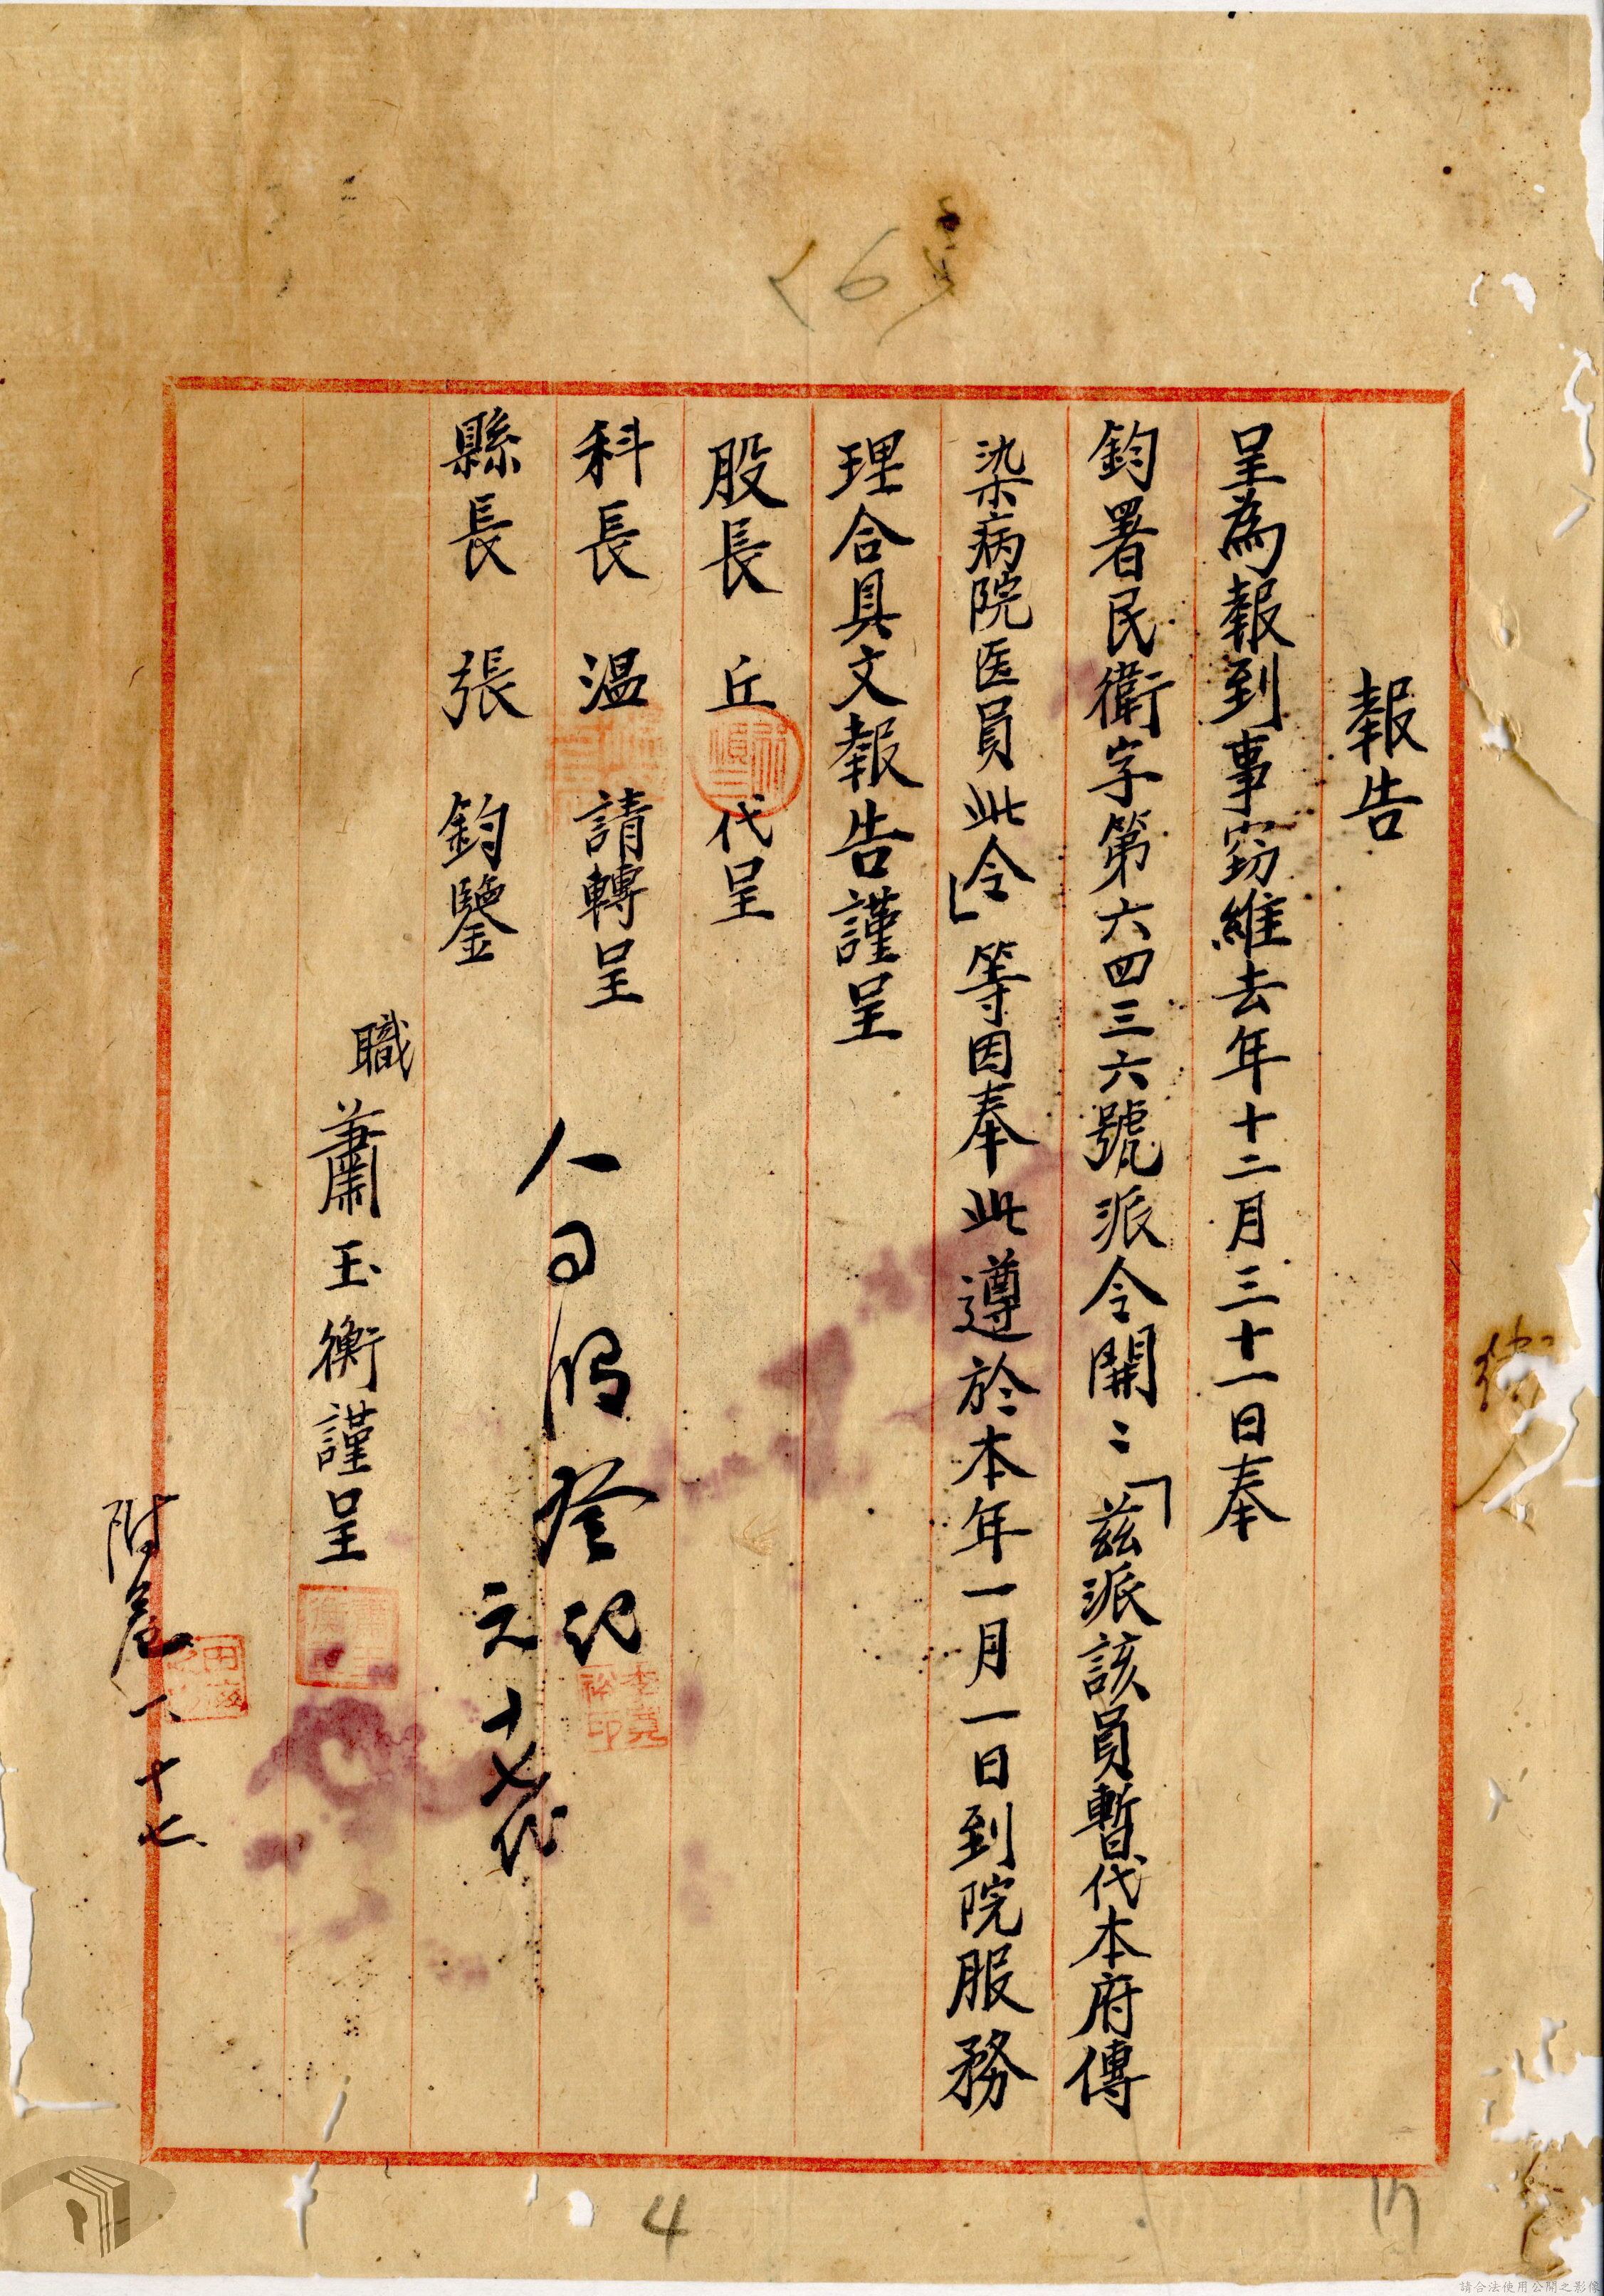 報告
呈為報到事竊維去年十二月三十一日奉
鈞署民衛字第六四三六號派令開：「茲派該員暫代本府傳
染病院医員此令」等因奉此遵於本年一月一日到院服務
理合具文報告謹呈
股長 丘 代呈
科長 溫 請轉呈
縣長 張 鈞鑒
職 蕭玉衡謹呈
登記
元 十七
附卷 一 十七
4
請合法使用公開之影像